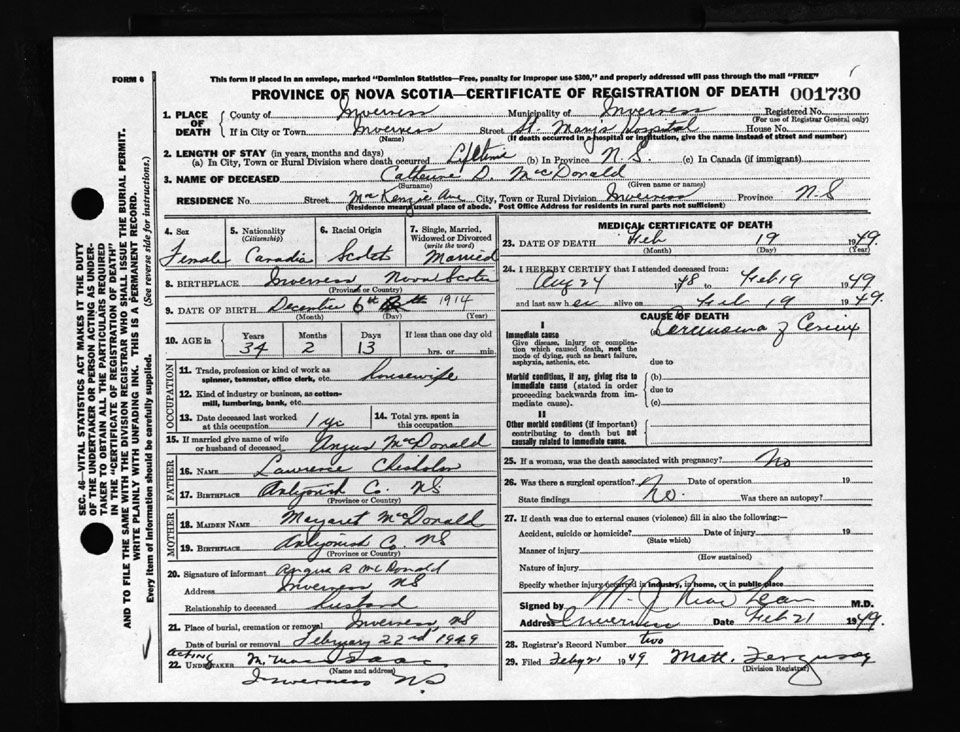 FORM 6
This form if placed in an envelope, marked "Dominion Statistics—Free, penalty for improper use $300," and properly addressed will pass through the mail "FREE"
PROVINCE OF NOVA SCOTIA—CERTIFICATE OF REGISTRATION OF DEATH 001730
1. PLACE OF DEATH
County of Inverness Municipality of Inverness Registered No.
(For use of Registrar General only)
If in City or Town Inverness Street St. Marys Hospital House No.
(Name) (If death occurred in a hospital or institution, give the name instead of street and number)
2. LENGTH OF STAY (in years, months and days)
(a) In City, Town or Rural Division where death occurred Lifetime (b) In Province N.S. (c) In Canada (if immigrant)
3. NAME OF DECEASED Catherine D. MacDonald
(Surname) (Given name or names)
RESIDENCE No. Street MacKenzie Ave City, Town or Rural Division Inverness Province N-S
(Residence means usual place of abode. Post Office Address for residents in rural parts not sufficient)
4. Sex Female
5. Nationality (Citizenship) Canadia
6. Racial Origin Scotch
7. Single, Married, Widowed or Divorced (write the word) Married
8. BIRTHPLACE Inverness Nova Scotia
(Province or Country)
9. DATE OF BIRTH December 6th 1914
(Month) (Day) (Year)
10. AGE in Years 34 Months 2 Days 13 If less than one day old hrs. or min.
OCCUPATION
11. Trade, profession or kind of work as spinner, teamster, office clerk, etc. housewife
12. Kind of industry or business, as cotton-mill, lumbering, bank, etc.
13. Date deceased last worked at this occupation 1 yr
14. Total yrs. spent in this occupation
15. If married give name of wife or husband of deceased Angus McDonald
FATHER
16. NAME Lawrence Chisholm
17. BIRTHPLACE Antigonish Co. NS
(Province or Country)
MOTHER
18. MAIDEN NAME Margaret McDonald
19. BIRTHPLACE Antigonish Co. NS
(Province or Country)
20. Signature of informant Angus R McDonald
Address Inverness NS
Relationship to deceased husband
21. Place of burial, cremation or removal Inverness, NS
Date of burial or removal February 22nd 1949
acting
22. UNDERTAKER M. Mac Isaac
(Name and address)
Inverness N.S
MEDICAL CERTIFICATE OF DEATH
23. DATE OF DEATH Feb 19 1949.
(Month) (Day) (Year)
24. I HEREBY CERTIFY that I attended deceased from:
Aug 24 1948 to Feb 19 1949
and last saw her alive on Feb 19 1949.
CAUSE OF DEATH
I
Immediate cause
Give disease, injury or complication which caused death, not the mode of dying, such as heart failure, asphyxia, asthenia, etc.
due to
Morbid conditions, if any, giving rise to immediate cause (stated in order proceeding backwards from immediate cause).
(b)
due to
(c)
II
Other morbid conditions (if important) contributing to death but not causally related to immediate cause.
25. If a woman, was the death associated with pregnancy? No
26. Was there a surgical operation? No. Date of operation 19
State findings Was there an autopsy?
27. If death was due to external causes (violence) fill in also the following:—
Accident, suicide or homicide? Date of injury 19
(State which)
Manner of injury
(How sustained)
Nature of injury
Specify whether injury occurred in industry, in home, or in public place
Signed by M.D.
Address Inverness Date Feb 21 1949.
28. Registrar's Record Number two
29. Filed Feby 21 1949 Matt. Ferguson
(Division Registrar)
SEC. 46—VITAL STATISTICS ACT MAKES IT THE DUTY
OF THE UNDERTAKER OR PERSON ACTING AS UNDER-
TAKER TO OBTAIN ALL THE PARTICULARS REQUIRED
IN THE "CERTIFICATE OF REGISTRATION OF DEATH"
AND TO FILE THE SAME WITH THE DIVISION REGISTRAR WHO SHALL ISSUE THE BURIAL PERMIT.
WRITE PLAINLY WITH UNFADING INK. THIS IS A PERMANENT RECORD.
Every item of Information should be carefully supplied. (See reverse side for instructions.)